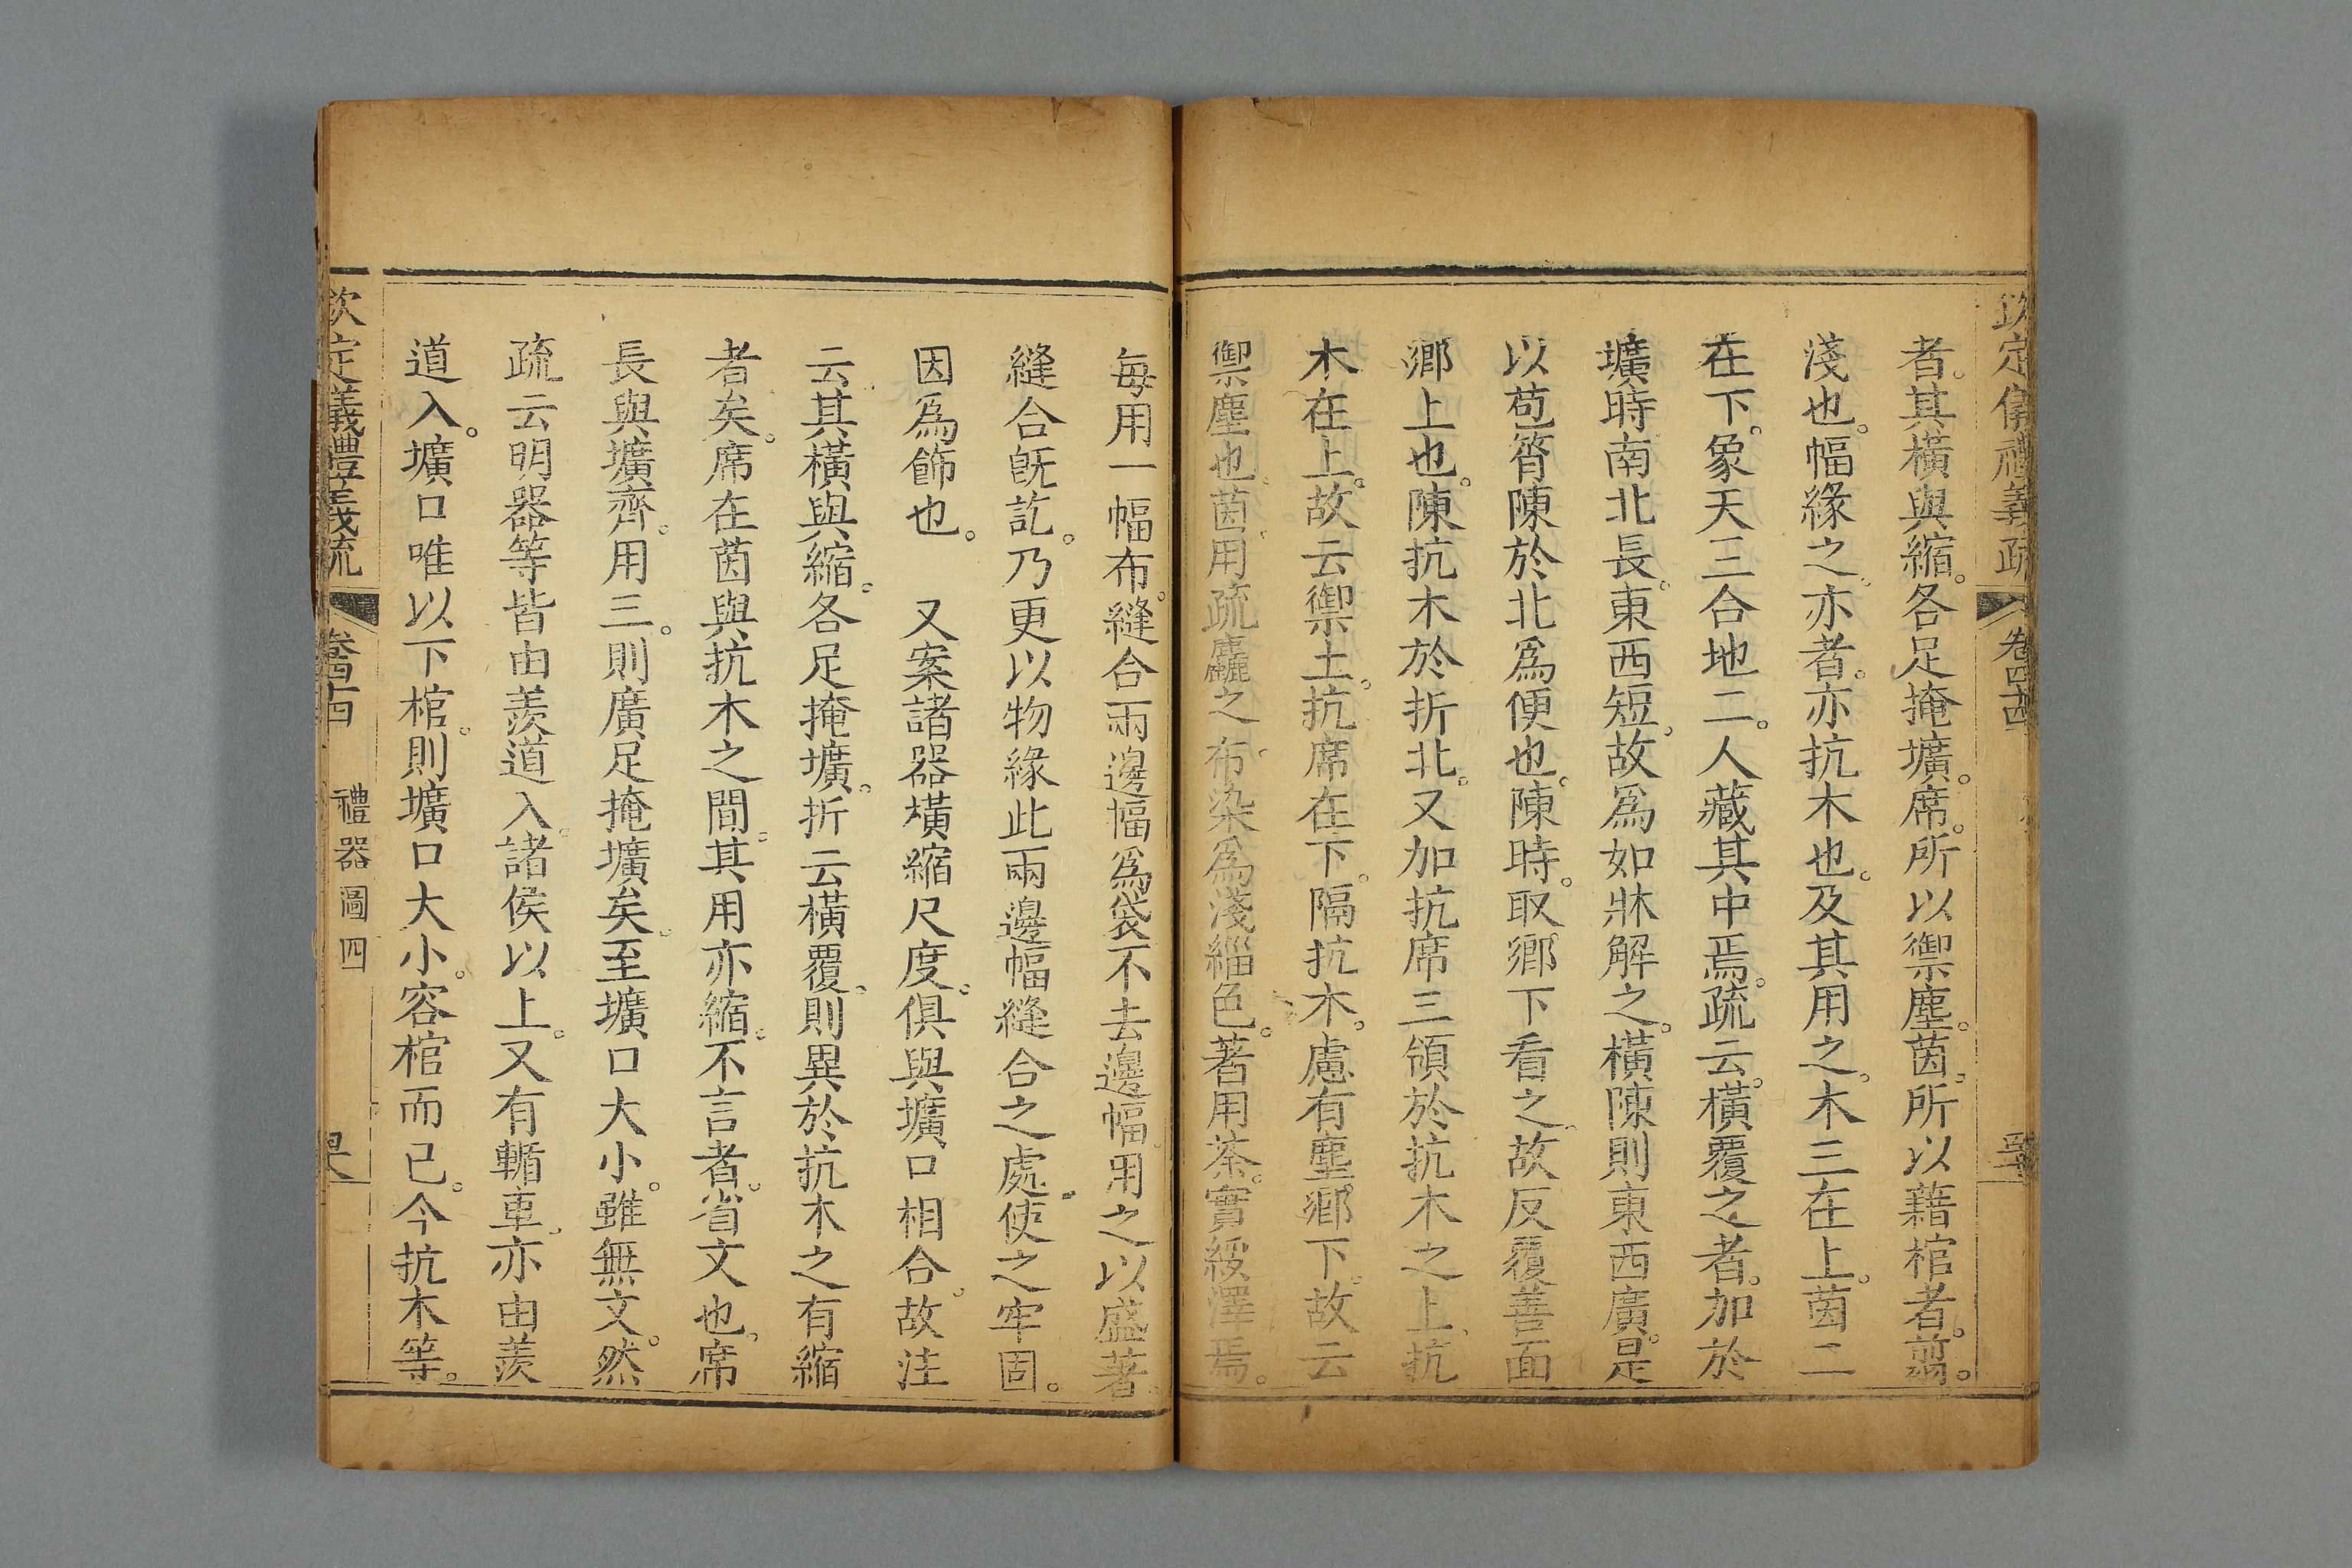 欽定儀禮義疏 卷四十四
者。其橫與縮。各足掩壙。席。所以禦塵。茵。所以藉棺者。翦。
淺也。幅緣之。亦者。亦抗木也。及其用之。木三在上。茵二
在下。象天三合地二。人藏其中焉。疏云。橫覆之者。加於
壙時南北長。東西短。故爲如牀解之。橫陳則東西廣。是
以苞筲陳於北爲便也。陳時。取鄉下看之。故反覆善面
鄉上也。陳抗木於折北。又加抗席三領於抗木之上。抗
木在上。故云禦土。抗席在下。隔抗木。慮有塵鄉下。故云
禦塵也。茵。用疏麤之布。染爲淺緇色。著用荼。實綏澤焉。
每用一幅布。縫合兩邊幅爲袋。不去邊幅。用之以盛著。
縫合旣訖。乃更以物緣此兩邊幅縫合之處。使之牢固。
因爲飾也。 又案諸器橫縮尺度。俱與壙口相合。故注
云。其橫與縮。各足掩壙。折云橫覆。則異於抗木之有縮
者矣。席在茵與抗木之間。其用亦縮。不言者。省文也。席
長與壙齊。用三。則廣足掩壙矣。至壙口大小。雖無文。然
疏云明器等皆由羨道入。諸侯以上。又有輴車。亦由羨
道入。壙口唯以下棺。則壙口大小。容棺而已。今抗木等。
欽定義禮義疏 卷四十四 禮器圖四